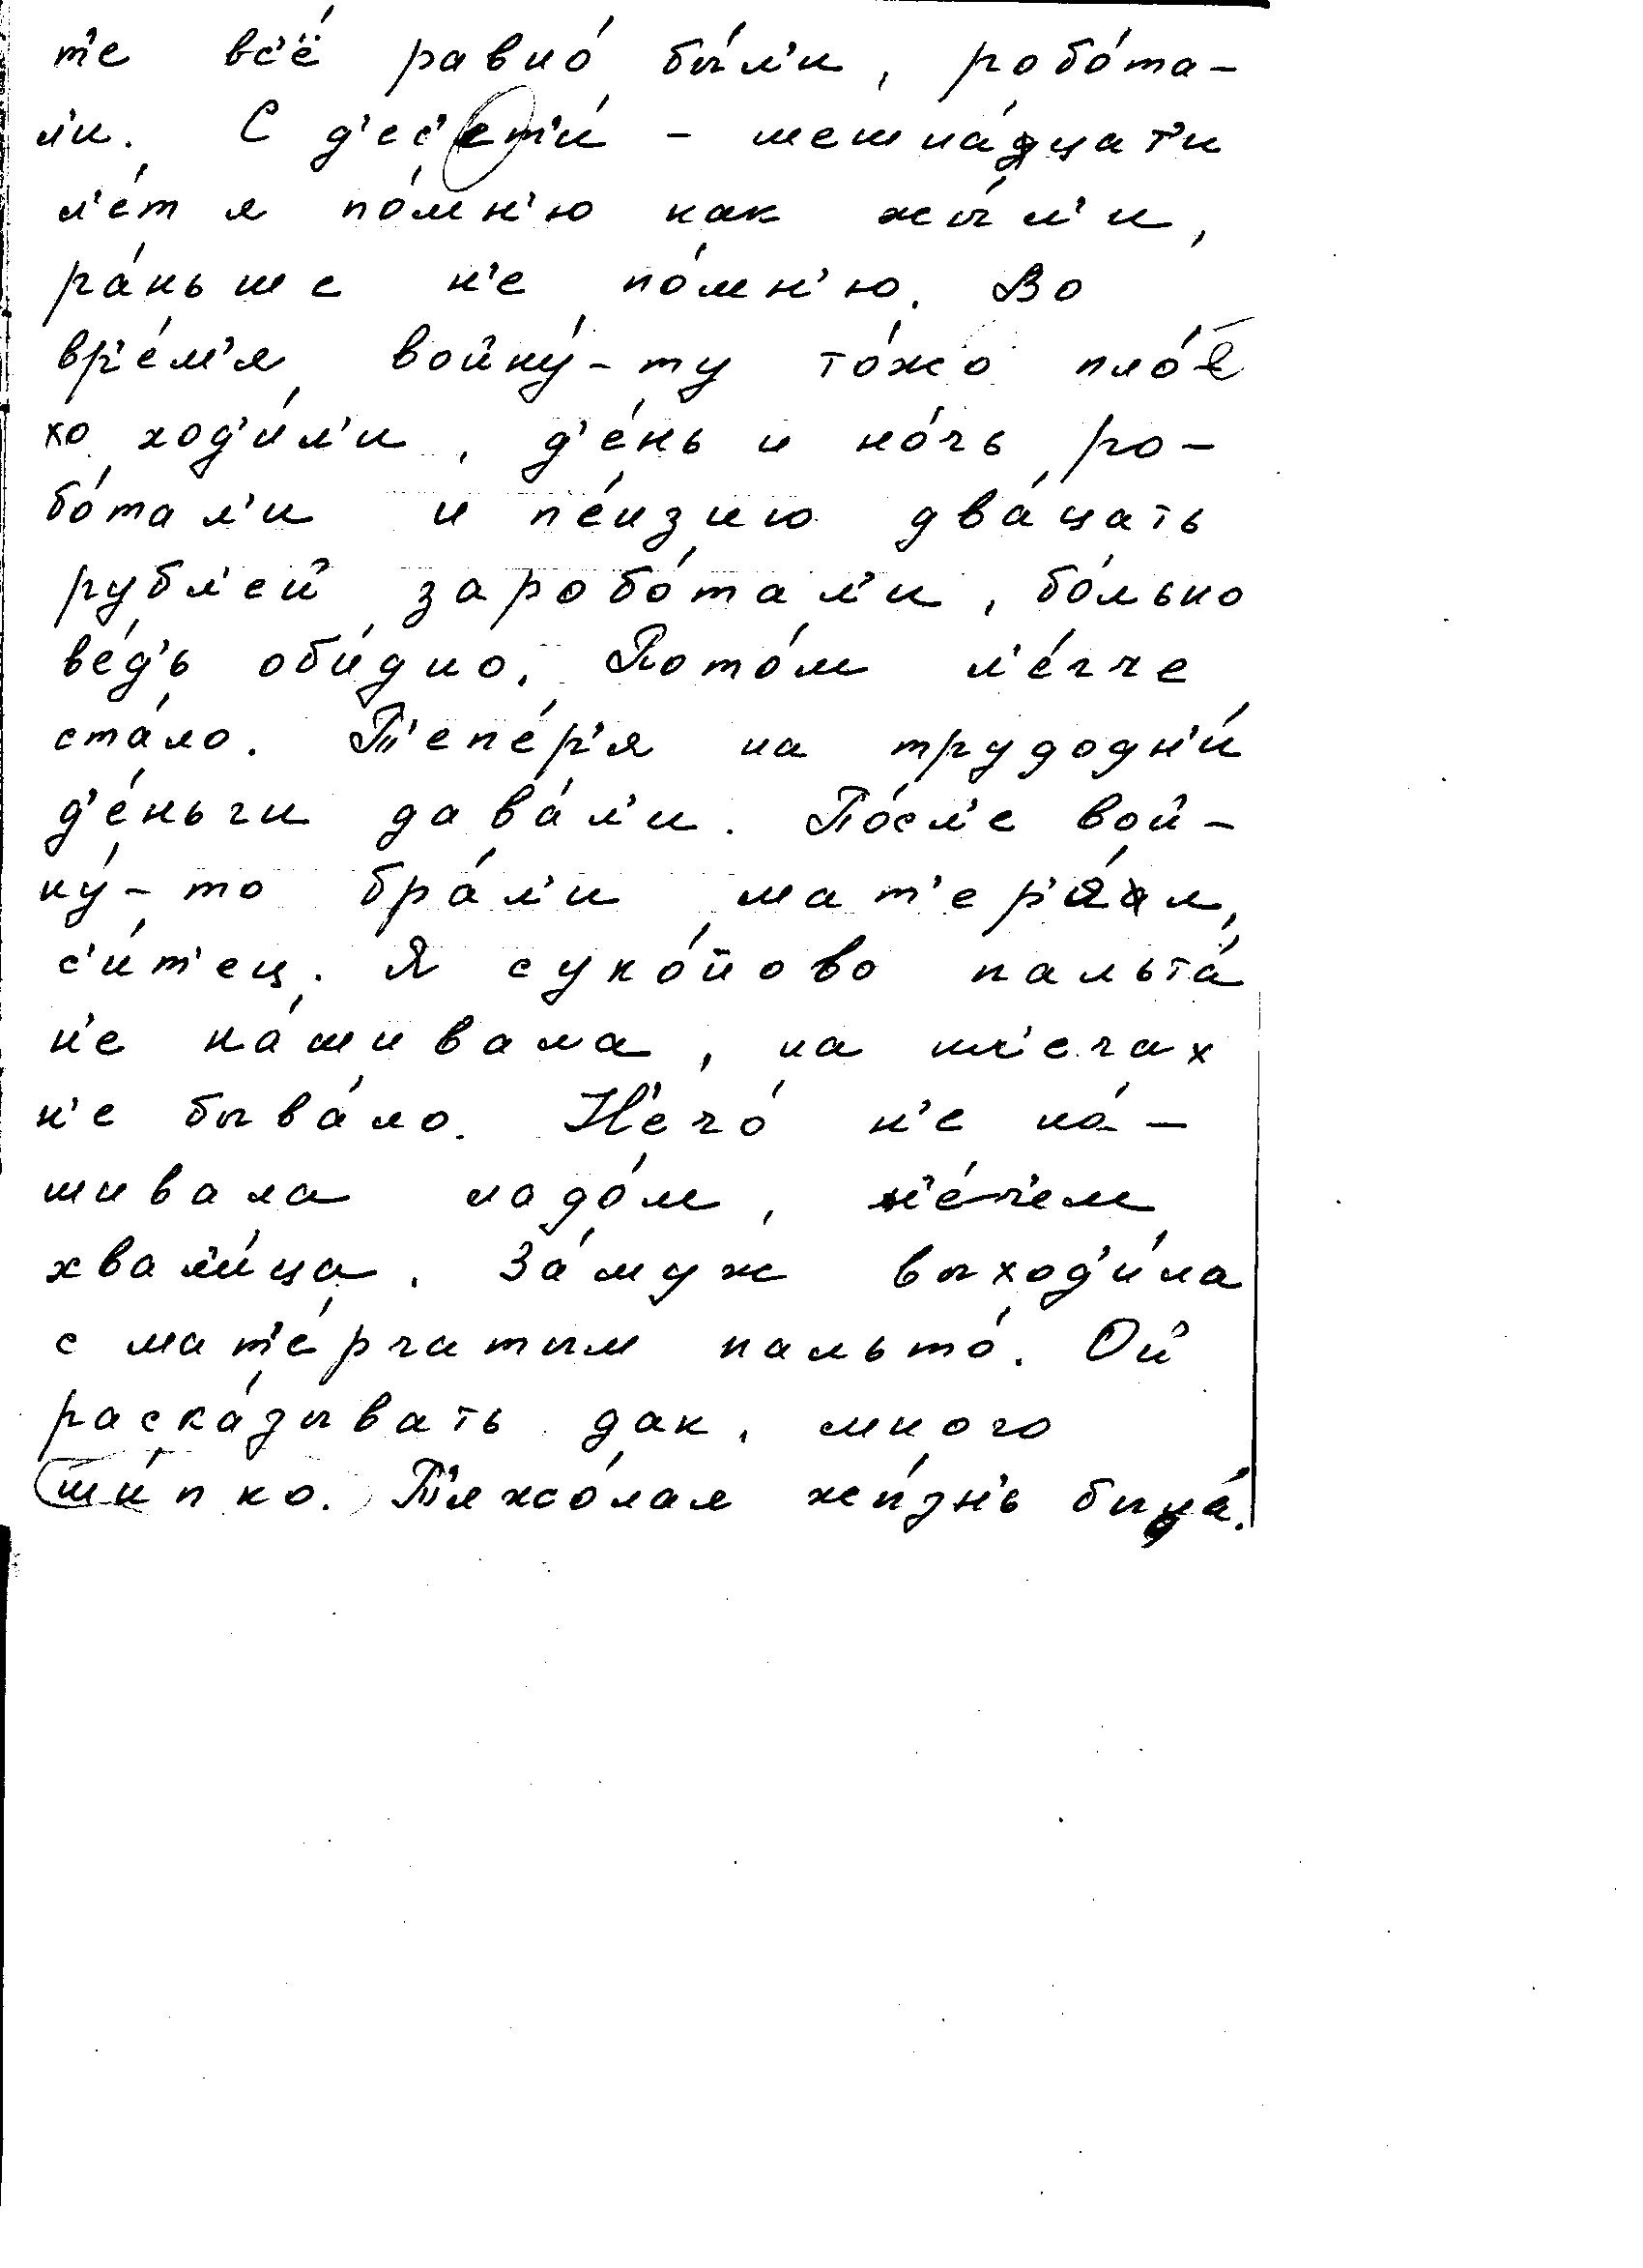 т'е вс'ё́ равно́ бы́л'и, робо́та-
л'и. С д'ес'ет'и́ - шешна́дцат'и
л'е́т я по́мн'ю как жы́л'и,
ра́ньше н'е по́мн'ю. Во
вр'е́м'я войну́-ту то́жо пло́-
хо ход'и́л'и, д'е́нь и но́чь ро-
бо́тал'и и пе́нзию два́цать
рубл'ей заробо́тал'и, бо́льно
ве́д'ь оби́дно. Пото́м л'е́гче
ста́ло. Т'епе́р'я на трудодн'и́
д'е́ньги дава́л'и. По́сл'е вой-
ну́-то бра́л'и мат'ер'я́л,
с'и́т'ец. Я суко́нново пальта́
н'е на́шивала, на пл'ечах
н'е быва́ло. Н'ечо́ н'е на́-
шивала ладо́м, н'е́ч'ем
хвал'и́ца. За́муж выход'и́ла
с мат'е́рчатым пальто́. Ой
раска́зывать дак, много
ши́пко. Т'яжо́лая жи́зн'ь была́.